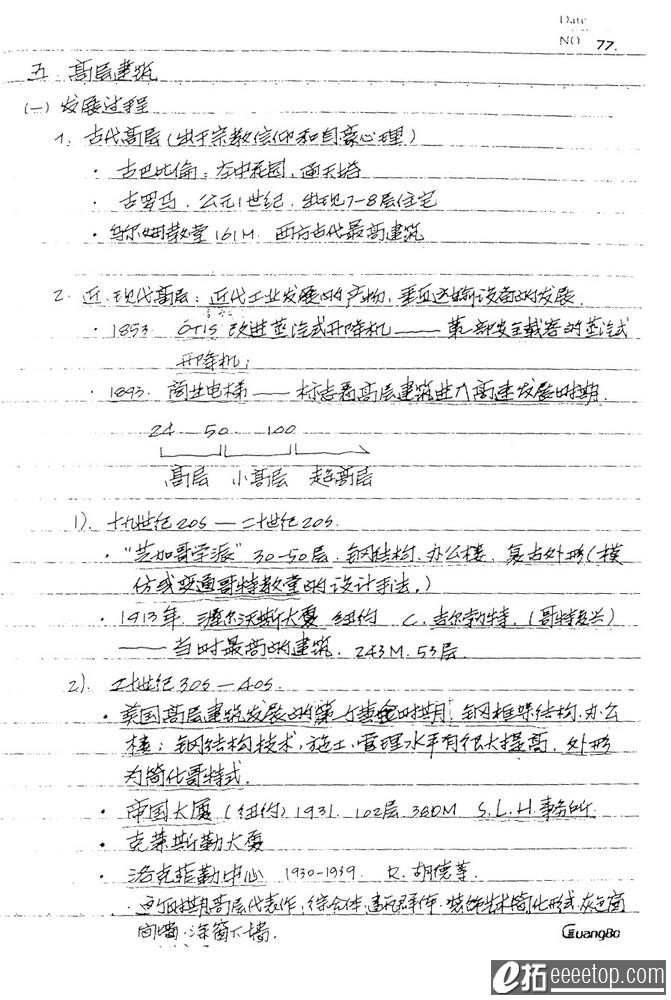 Date
NO 77.
五. 高层建筑
(一) 发展过程
1. 古代高层 (出于宗教信仰和自豪心理)
· 古巴比伦: 空中花园, 通天塔
· 古罗马. 公元1世纪. 出现7-8层住宅
· 乌尔姆教堂 161M. 西方古代最高建筑
2. 近.现代高层: 近代工业发展的产物, 垂直运输设备的发展.
· 1853. OTIS 改进蒸汽式升降机——第一部安全载客的蒸汽式
升降机;
· 1893. 商业电梯——标志着高层建筑进入高速发展时期.
24 50 100
高层 小高层 超高层
1). 十九世纪20S—二十世纪20S.
· "芝加哥学派" 30-50层. 钢结构. 办公楼. 复古外形(模
仿或变通哥特教堂的设计手法.)
· 1913年. 渥尔沃斯大厦 纽约 C. 吉尔勃特. (哥特复兴)
——当时最高的建筑. 243M. 53层.
2). 二十世纪30S—40S.
· 美国高层建筑发展的第一个黄金时期, 钢框架结构. 办公
楼; 钢结构技术, 施工, 管理水平有很大提高. 外形
为简化哥特式.
· 帝国大厦 (纽约) 1931. 102层 380M S.L.H.事务所
· 克莱斯勒大厦
· 洛克菲勒中心 1930-1939. R. 胡德等.
· 这个时期高层代表作, 综合体, 建筑群体. 装饰艺术简化形式. 灰色窗
间墙. 深窗下墙.
GuangBo
e拓eeeetop.com